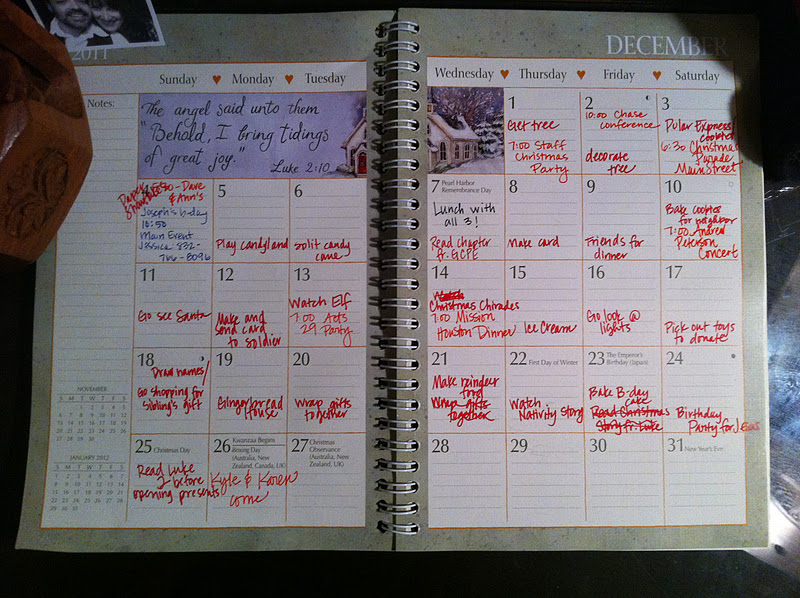 2011
DECEMBER
Sunday Monday Tuesday
Wednesday Thursday Friday Saturday
Notes:
The angel said unto them
"Behold, I bring tidings
of great joy."
Luke 2:10
1
Get tree
7:00 Staff
Christmas
Party
2
10:00 Chase
conference
decorate
tree
3
Polar Express
cookies
6:30 Christmas
Parade
Main Street
4
Paper
- Dave
& Ann's
Joseph's b-day
10:50
Main Event
Jessica: 832-
746-8096
5
Play candyland
6
split candy
cane
7 Pearl Harbor
Remembrance Day
Lunch with
all 3!
Read chapter
fr. GCPE
8
Make card
9
Friends for
dinner
10
Bake cookies
for neighbor
7:00 Andrew
Peterson
Concert
11
Go see Santa
12
Make and
send card
to soldier
13
Watch Elf
7:00 Acts
29 Party
14
Watch
Christmas Chirades
7:00 Mission
Houston Dinner
15
Ice Cream
16
Go look @
lights
17
Pick out toys
to donate
18
Draw names/
Go shopping for
sibling's gift
19
Gingerbread
House
20
Wrap gifts
together
21
Make reindeer
food
Wrap gifts
together
22 First Day of Winter
Watch
Nativity story
23 The Emperor's
Birthday (Japan)
Bake B-day
Cake
Read Christmas
Story fr. Luke
24
Birthday
Party for Jesus
25 Christmas Day
Read Luke
2 before
opening presents
26 Kwanzaa Begins
Boxing Day
(Australia, New
Zealand, Canada, UK)
Kyle & Karen
come
27 Christmas
Observance
(Australia, New
Zealand, UK)
28
29
30
31 New Year's Eve
NOVEMBER
S M T W T F S
1 2 3 4 5
6 7 8 9 10 11 12
13 14 15 16 17 18 19
20 21 22 23 24 25 26
27 28 29 30
JANUARY 2012
S M T W T F S
1 2 3 4 5 6 7
8 9 10 11 12 13 14
15 16 17 18 19 20 21
22 23 24 25 26 27 28
29 30 31